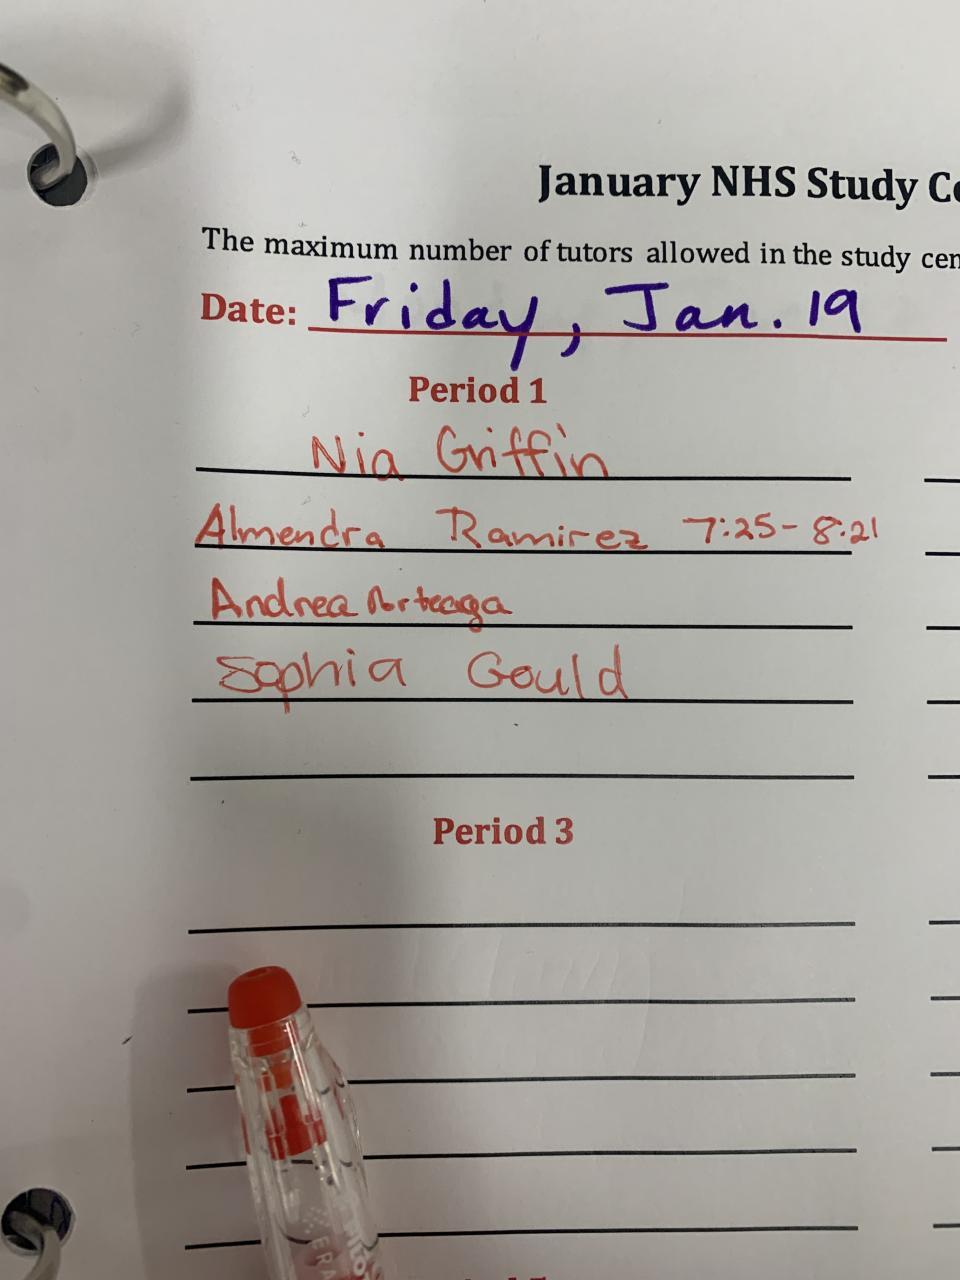 January NHS Study
The maximum number of tutors allowed in the study
Date: Friday, Jan. 19
Period 1
Nia Griffin
Almendra Ramirez 7:25-8:21
Andrea Arteaga
Sophia Gould
Period 3